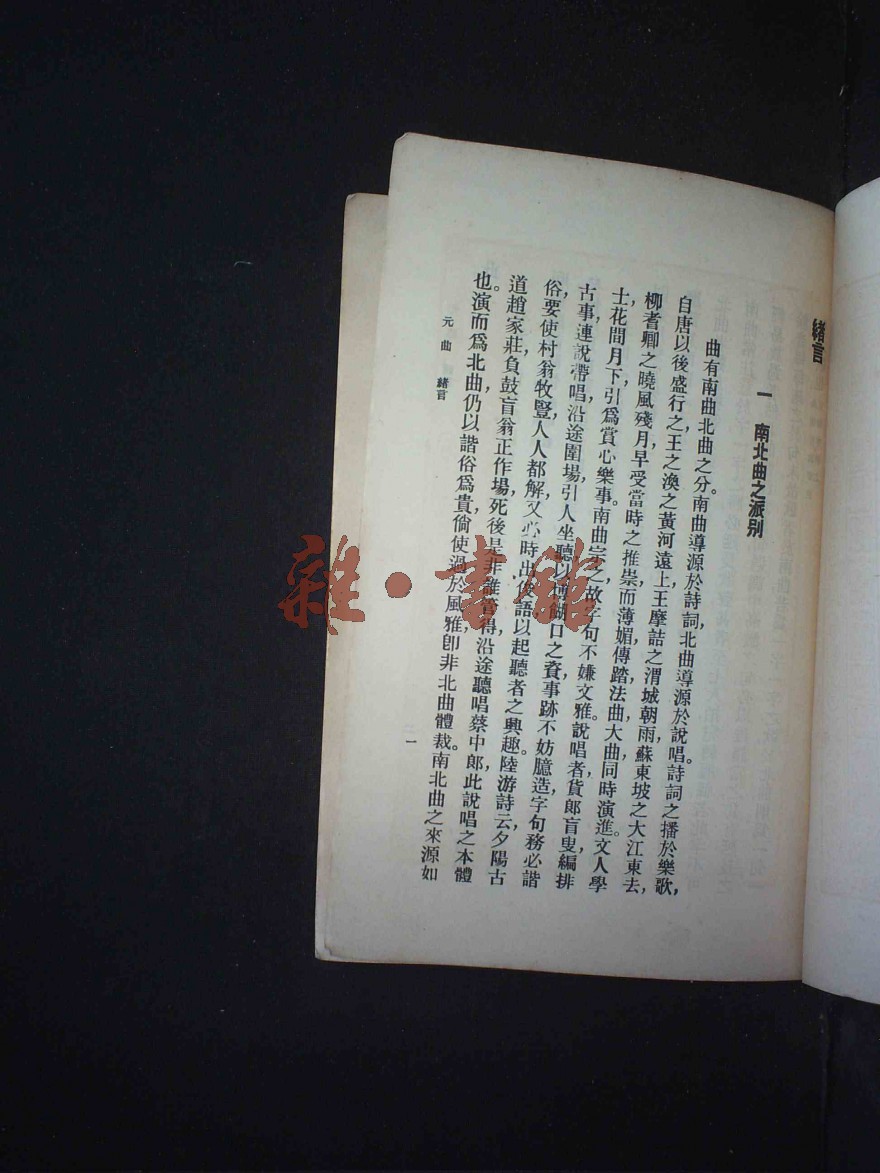 緒言
一　南北曲之派別
曲有南曲北曲之分。南曲導源於詩詞北曲導源於說唱。詩詞之播於樂歌，
自唐以後盛行之王之渙之黃河遠上，王摩詰之渭城朝雨，蘇東坡之大江東去，
柳耆卿之曉風殘月，早受當時之推崇。而薄媚傳踏法曲大曲同時演進。文人學
士，花間月下，引爲賞心樂事。南曲宗之，故字句不嫌文雅。說唱者貨郎盲叟，編排
古事，連說帶唱，沿途圍場，引人坐聽，以博餬口之資，事跡不妨臆造，字句務必諧
俗，要使村翁牧豎，人人都解，又必時出俊語，以起聽者之興趣。陸游詩云，夕陽古
道趙家莊，負鼓盲翁正作場，死後是非誰管得，沿途聽唱蔡中郎，此說唱之本體
也。演而爲北曲，仍以諧俗爲貴，倘使過於風雅，卽非北曲體裁。南北曲之來源如
元曲　緒言
一
雜·書館